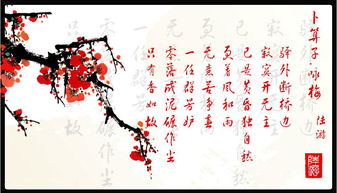 卜算子·咏梅
陆游
驿外断桥边
寂寞开无主
已是黄昏独自愁
更着风和雨
无意苦争春
一任群芳妒
零落成泥碾作尘
只有香如故